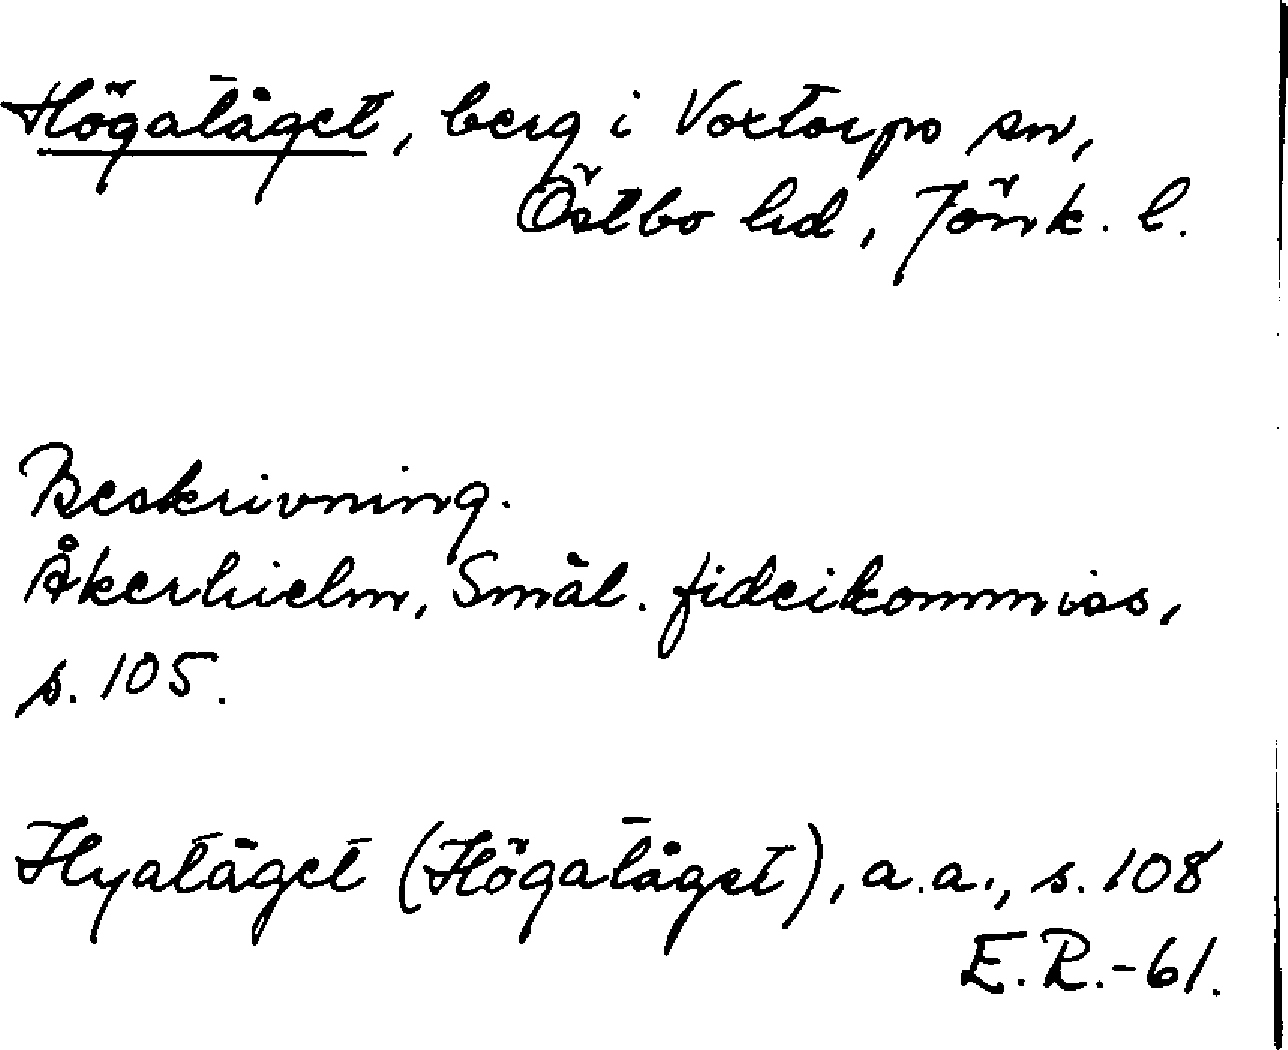 Högatåget, berg i Voxtorps sn,
Östbo hd, Jönk. l.
Beskrivning.
Åkerhielm, Smål. fideikommiss,
s. 105.
Hyatåget (Högatåget), a.a., s. 108
E.R.-61.